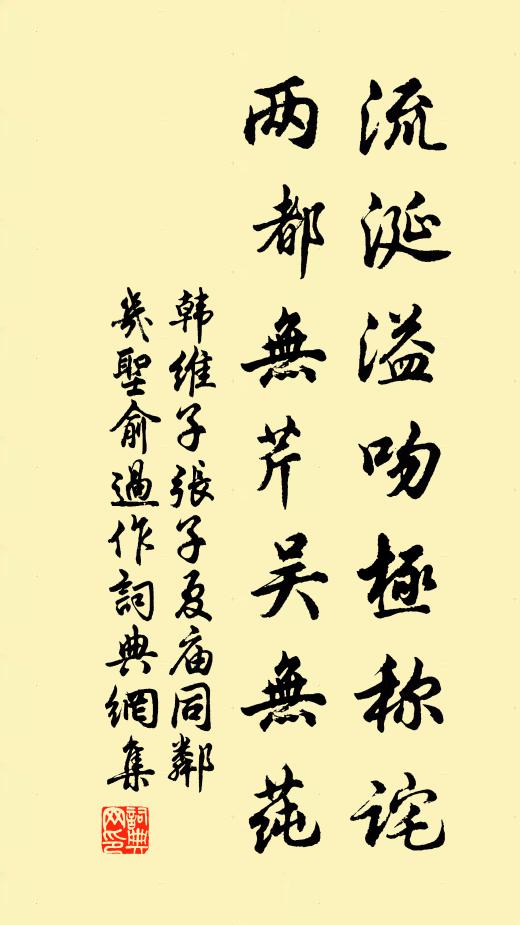 流涎溢吻極称詫
两都無芹吴無莼
韩維子張子夏庙同鄰
幾聖俞過作詞典網集
詞典
网印